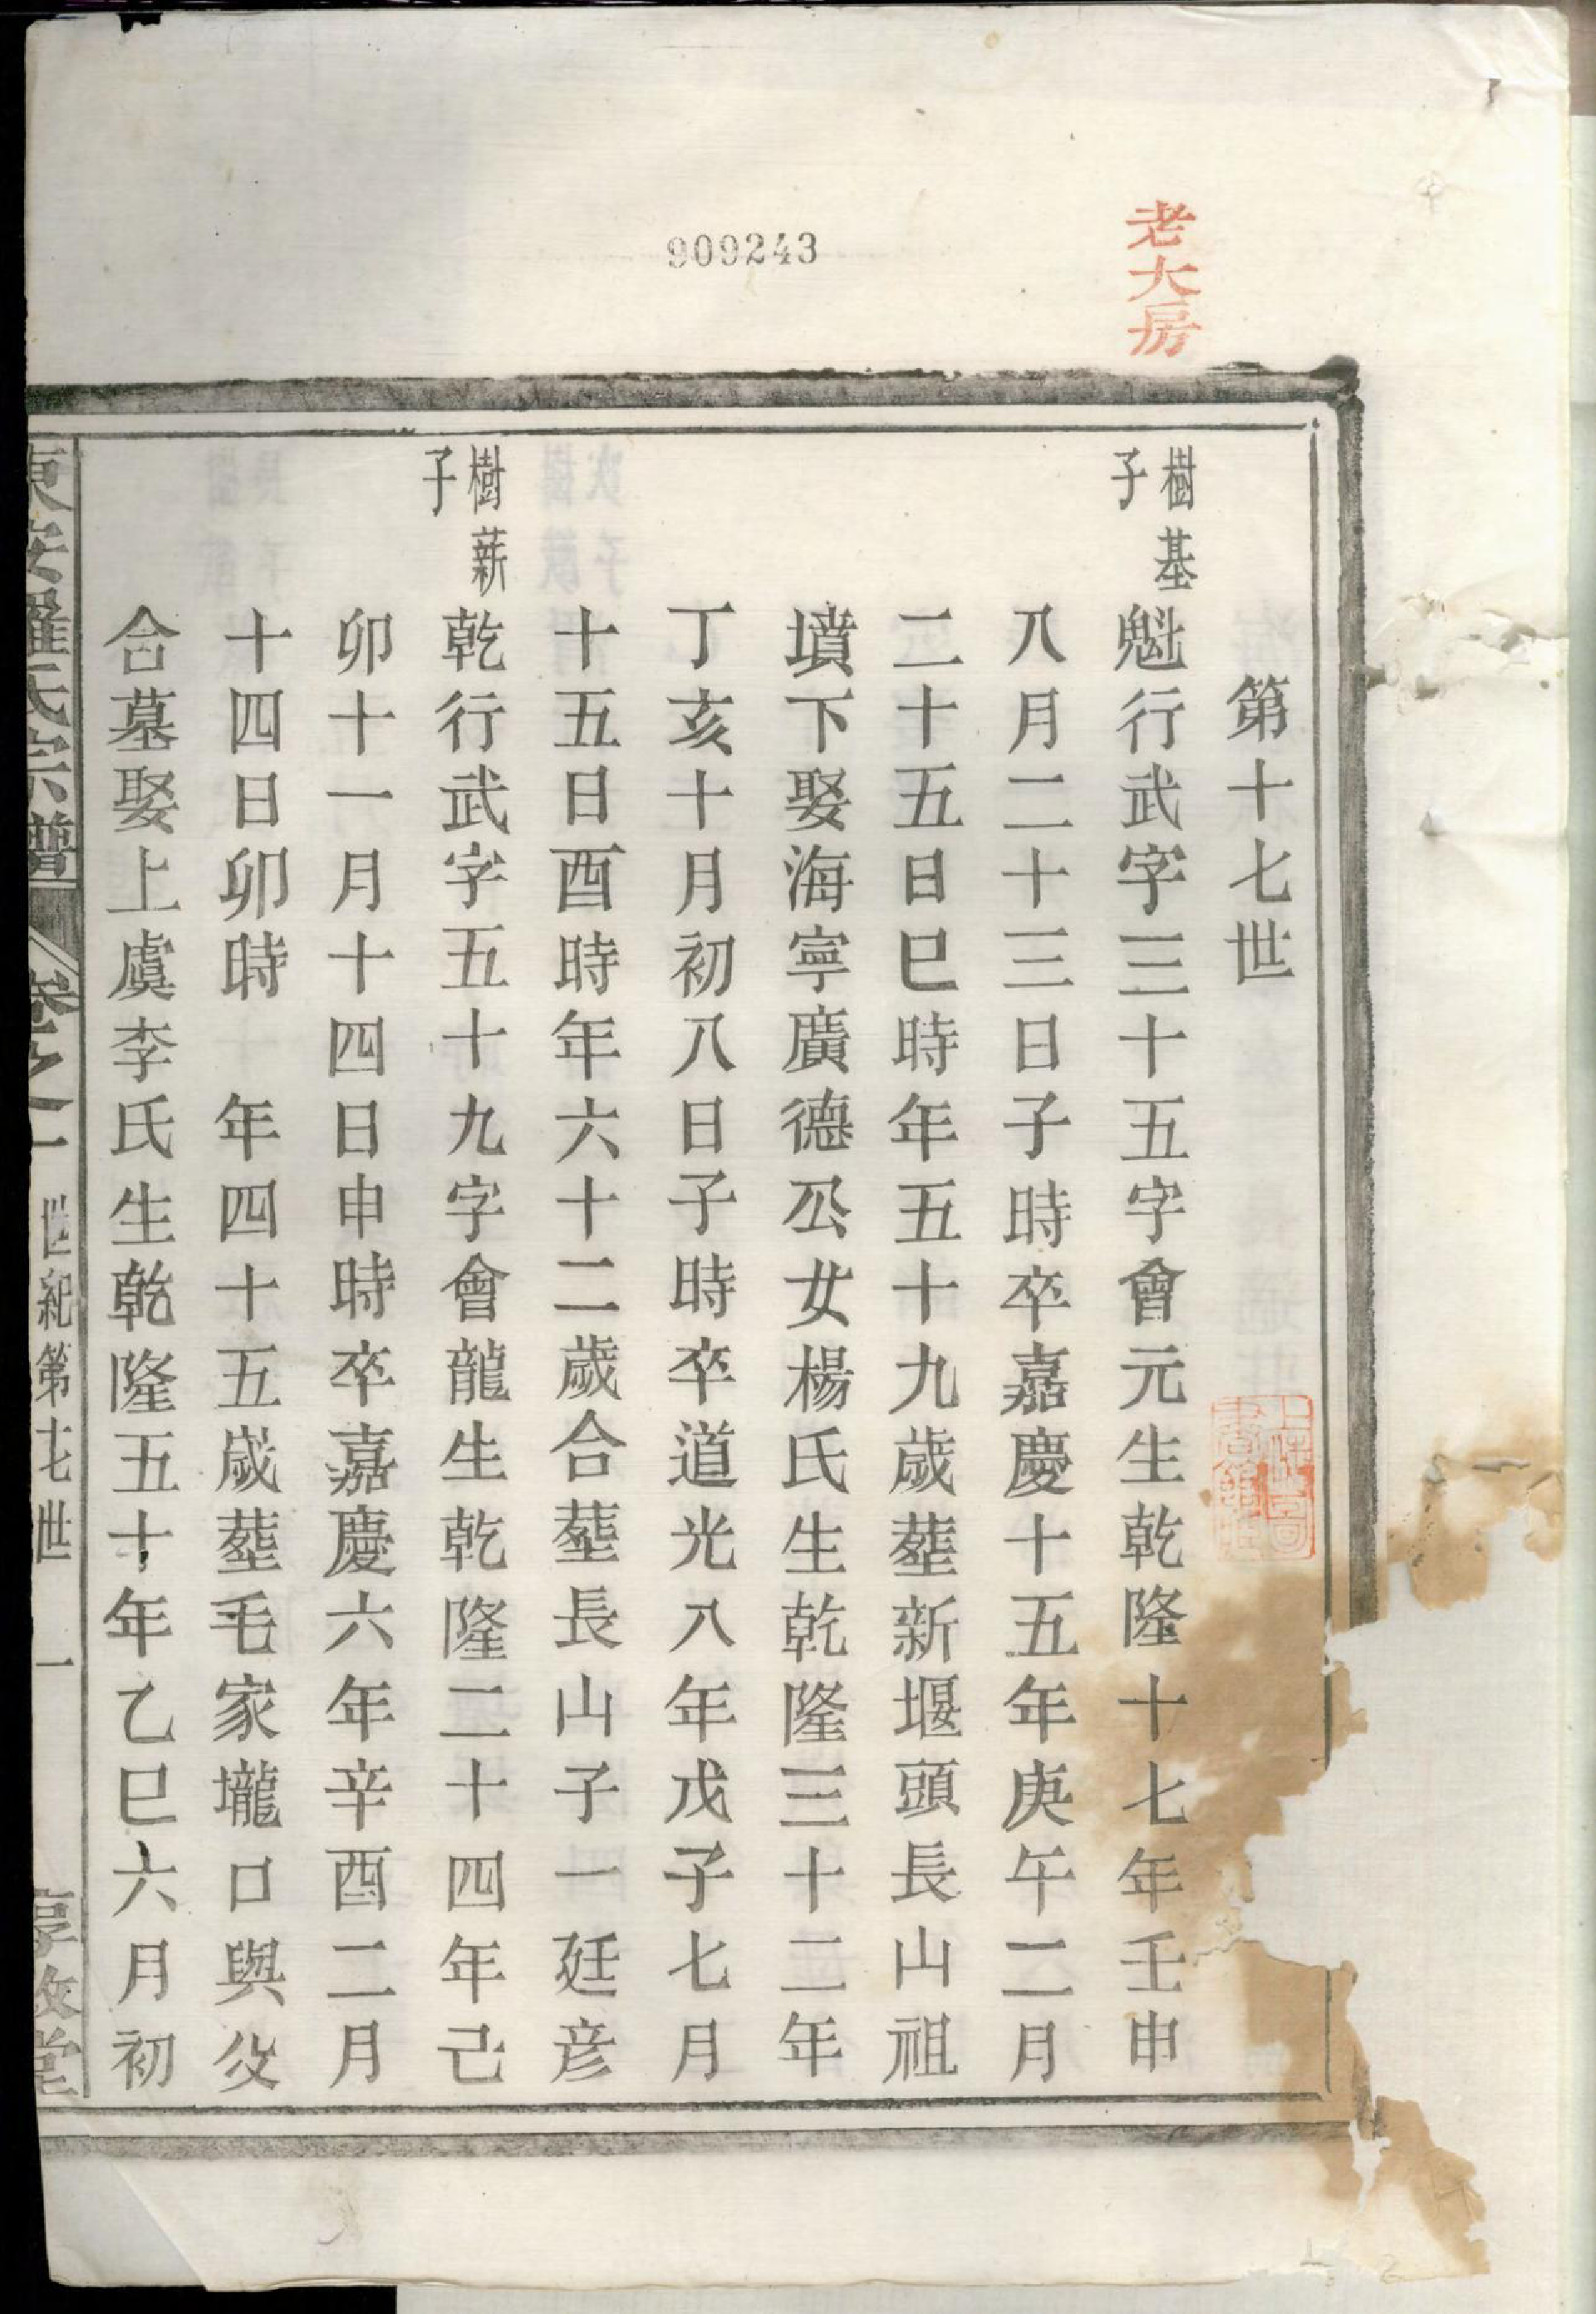 老大房
909243
第十七世
樹基
子
魁行武字三十五字會元生乾隆十七年壬申
八月二十三日子時卒嘉慶十五年庚午二月
二十五日巳時年五十九歲塟新堰頭長山祖
墳下娶海寧廣德公女楊氏生乾隆三十二年
丁亥十月初八日子時卒道光八年戊子七月
十五日酉時年六十二歲合塟長山子一廷彦
樹薪
子
乾行武字五十九字會龍生乾隆二十四年己
卯十一月十四日申時卒嘉慶六年辛酉二月
十四日卯時 年四十五歲塟毛家壠口與父
合墓娶上虞李氏生乾隆五十年乙巳六月初
東安羅氏宗譜 卷之一 世紀第十七世 一